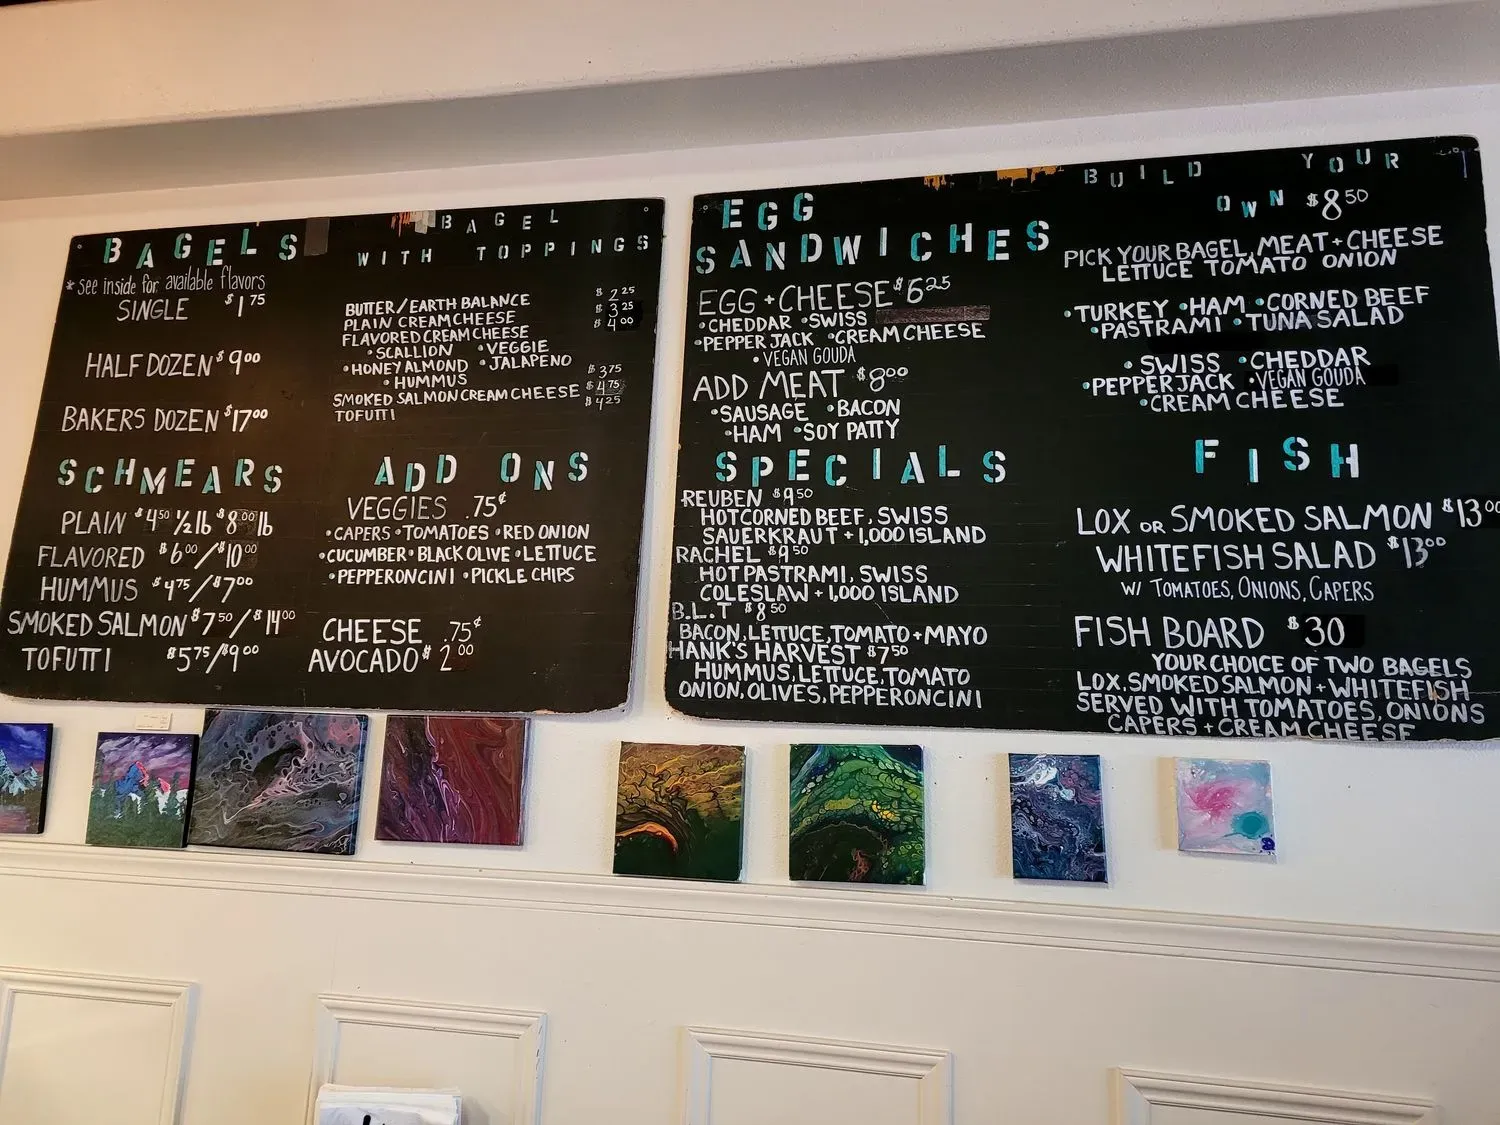 BAGELS
*see inside for available flavors
SINGLE $1.75
HALF DOZEN $9.00
BAKERS DOZEN $17.00
SCHMEARS
PLAIN $4.50 1/2 lb $8.00 lb
FLAVORED $6.00/$10.00
HUMMUS $4.75/$7.00
SMOKED SALMON $7.50/$14.00
TOFUTTI $5.75/$9.00
BAGEL
WITH TOPPINGS
BUTTER/EARTH BALANCE $2.25
PLAIN CREAM CHEESE $3.25
FLAVORED CREAM CHEESE $4.00
•SCALLION •VEGGIE
•HONEY ALMOND •JALAPENO
•HUMMUS $3.75
SMOKED SALMON CREAM CHEESE $4.75
TOFUTTI $4.25
ADD ONS
VEGGIES .75¢
•CAPERS •TOMATOES •RED ONION
•CUCUMBER •BLACK OLIVE •LETTUCE
•PEPPERONCINI •PICKLE CHIPS
CHEESE .75¢
AVOCADO $2.00
EGG
SANDWICHES
EGG + CHEESE $6.25
•CHEDDAR •SWISS
•PEPPER JACK •CREAM CHEESE
•VEGAN GOUDA
ADD MEAT $8.00
•SAUSAGE •BACON
•HAM •SOY PATTY
SPECIALS
REUBEN $9.50
HOT CORNED BEEF, SWISS
SAUERKRAUT + 1,000 ISLAND
RACHEL $9.50
HOT PASTRAMI, SWISS
COLESLAW + 1,000 ISLAND
B.L.T $8.50
BACON, LETTUCE, TOMATO + MAYO
HANK'S HARVEST $7.50
HUMMUS, LETTUCE, TOMATO
ONION, OLIVES, PEPPERONCINI
BUILD YOUR
OWN $8.50
PICK YOUR BAGEL, MEAT + CHEESE
LETTUCE TOMATO ONION
•TURKEY •HAM •CORNED BEEF
•PASTRAMI •TUNA SALAD
•SWISS •CHEDDAR
•PEPPER JACK •VEGAN GOUDA
•CREAM CHEESE
FISH
LOX OR SMOKED SALMON $13.00
WHITEFISH SALAD $13.00
W/ TOMATOES, ONIONS, CAPERS
FISH BOARD $30
YOUR CHOICE OF TWO BAGELS
LOX, SMOKED SALMON + WHITEFISH
SERVED WITH TOMATOES, ONIONS
CAPERS + CREAM CHEESE